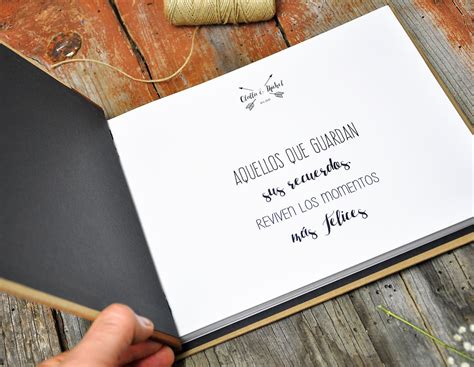 AQUELLOS QUE GUARDAN
sus recuerdos
REVIVEN LOS MOMENTOS
más felices